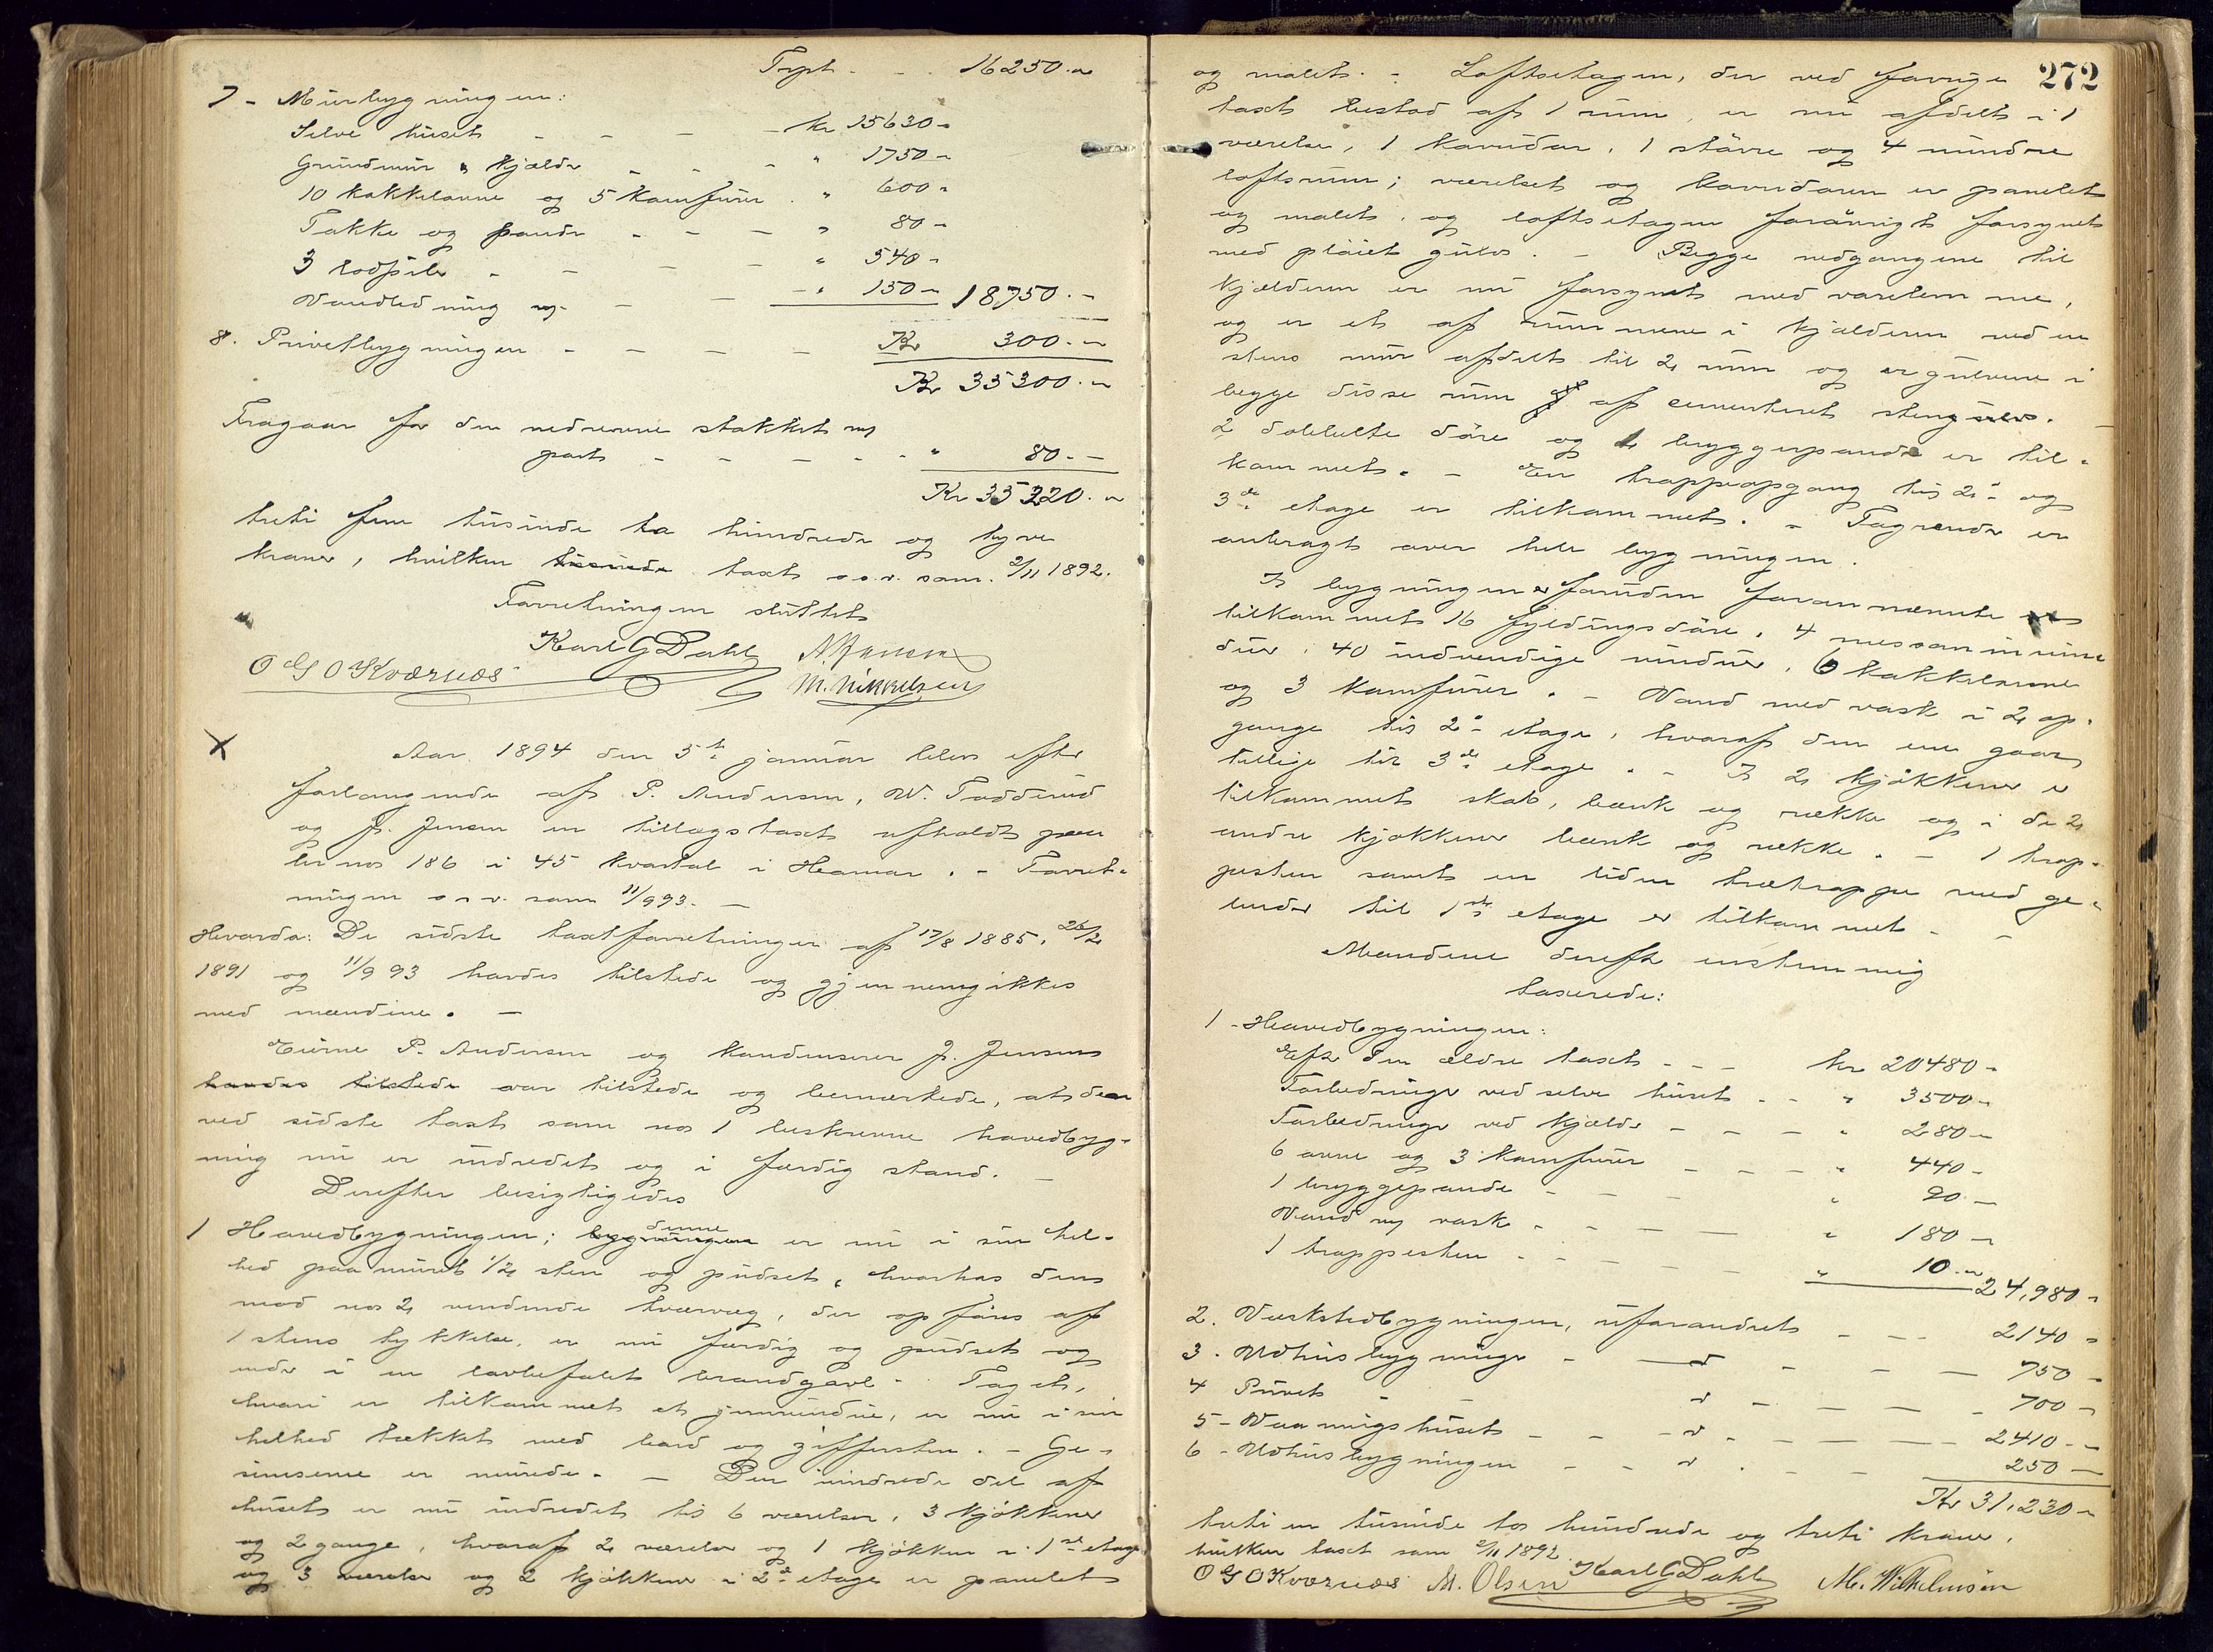 Trpt. - - 16250.-
7 - Murbygningen:
Selve huset - - - - kr 15630-
Grundmur & kjælder - - - " 1750-
10 kakkelovne og 5 komfurer - " 600-
Takke og pande - - - " 80-
3 lodpiber - - - - " 540-
Vandledning - - - " 150- 18,750.-
8. Privetbygningen - - - - Kr 300.-
Kr 35300.-
Fragaar for den nedrevne stakket
port - - - - - " 80.-
Kr 35220.-
treti fem tusinde to hundrede og tyve
kroner, hvilken tusinde taxt o.s.v. som 2/11 1892.
Forretningen sluttet
Karl G Dahl
O G O Kværnes M. Mikkelsen
X
Aar 1894 den 5te januar blev efter
forlangende af P. Andersen, W. Fodderud
og J. Jensen en tillægstaxt afholdt paa
br nos 186 i 45 kvartal i Hamar. - Forret-
ningen o s v. som 11/9 93. -
Hvorda: De sidste taxtforretninger af 17/8 1885, 26/2
1891 og 11/9 93 havdes tilstede og gjennemgikkes
med mændene. -
Eierne P. Andersen og kondenserer J. Jensen
havdes tilstede var tilstede og bemærkede, at den
ved sidste taxt som nos 1 beskrevne hovedbyg-
ning nu er indredet og i færdig stand. -
Derefter besigtigedes
1 Hovedbygningen; bygningen denne er nu i sin hel-
hed paamuret 1/2 sten og pudset, hvorhos dens
mod nos 2 vendende tværvæg, der opføres af
1 stens tykkelse, er nu færdig og pudset og
ender i en lovbefalet brandgavl - Taget,
hvori er tilkommet et jernvindue, er nu i sin
helhed tækket med bord og ziffersten. - Ge-
simserne er murede. - Den indredede del af
huset er nu indredet til 6 værelser, 3 kjøkkener
og 2 gange, hvoraf 2 værelser og 1 kjøkken i 1ste etage
og 3 værelser og 2 kjøkkener i 2den etage er panelet
272
og malet. - Loftsetagen, der ved forrige
taxt bestod af 1 rum, er nu afdelt i 1
værelse, 1 korridor, 1 større og 4 mindre
loftsrum; værelset og korridoren er panelet
og malet, og loftsetagen forøvrigt forsynet
med pløiet gulv. - Begge nedgangene til
kjælderen er nu forsynet med varelemme,
og er et af rummene i kjælderen ved en
stens mur afdelt til 2 rum og er gulvene i
begge disse rum af cementeret stengulv. -
2 dobbelte døre og 1 bryggepande er til-
kommet. - En trappeopgang til 2den og
3die etage er tilkommet. - Tagrender er
anbragt over hele bygningen.
I bygningen er foruden foran nævnte
tilkommet 16 fyldingsdøre, 4 messaninvin-
duer, 40 indvendige vinduer, 6 kakkelovne
og 3 komfurer. - Vand med vask i 2 op-
gange til 2den etage, hvoraf den ene gaar
tillige til 3die etage. - I 2 kjøkkener er
tilkommet skab, bænk og række og i de 2
andre kjøkkener bænk og række. - 1 trap-
pesten samt en liden trætrappe med ge-
lender til 1ste etage er tilkommet - -
Mændene derefter enstemmig
taxerede:
1 - Hovedbygningen:
Efter den ældre taxt - - - kr 20480-
Forbedringer ved selve huset - - " 3500-
Forbedringer ved kjælder - - - - " 280-
6 ovne og 3 komfurer - - - - " 440-
1 bryggepande - - - - " 90-
Vand og vask - - - - - " 180-
1 trappesten - - - - - " 10.- 24,980-
2. Verkstedbygningen, uforandret - - - 2140-
3. Udhusbygningen - - d - - - 750-
4 Privet - - d - - - - 700-
5 - Vaaningshuset - - - d - - - - 2410.-
6 - Udhusbygningen - - d - - - 250-
Kr 31,230-
treti en tusinde to hundrede og treti kroner,
hvilken taxt som 2/11 1892
O G O Kværnes M. Olsen Karl G Dahl M. Wilhelmsen